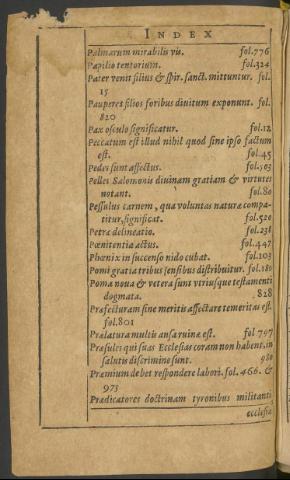 INDEX
Palmarum mirabilis vis. fol.776
Papilio tentorium. fol.324
Pater venit filius & spir. sanct. mittuntur. fol.
15
Pauperes filios foribus divitum exponunt. fol.
820
Pax osculo significatur. fol.12
Peccatum est illud nihil quod sine ipso factum
est. fol.45
Pedes sunt affectus.
Pelles Salomonis divinam gratiam & virtutes
notant. fol.80
Pessulus carnem, qua voluntas naturæ compa-
titur, significat. fol.520
Petræ delineatio. fol.238
Pœnitentia actus. fol.447
Phœnix in succenso nido cubat. fol.103
Pomi gratia tribus sensibus distribuitur. fol.180
Poma nova & vetera sunt utriusque testamenti
dogmata. 828
Præfecturam sine meritis affectare temeritas est.
fol.801
Prælatura multis ansa ruinæ est. fol 797
Præsules qui suas Ecclesias coram non habent, in
salutis discrimine sunt. 980
Præmium debet respondere labori. fol.466. &
973
Prædicatores doctrinam tyronibus militanti
ecclesiæ